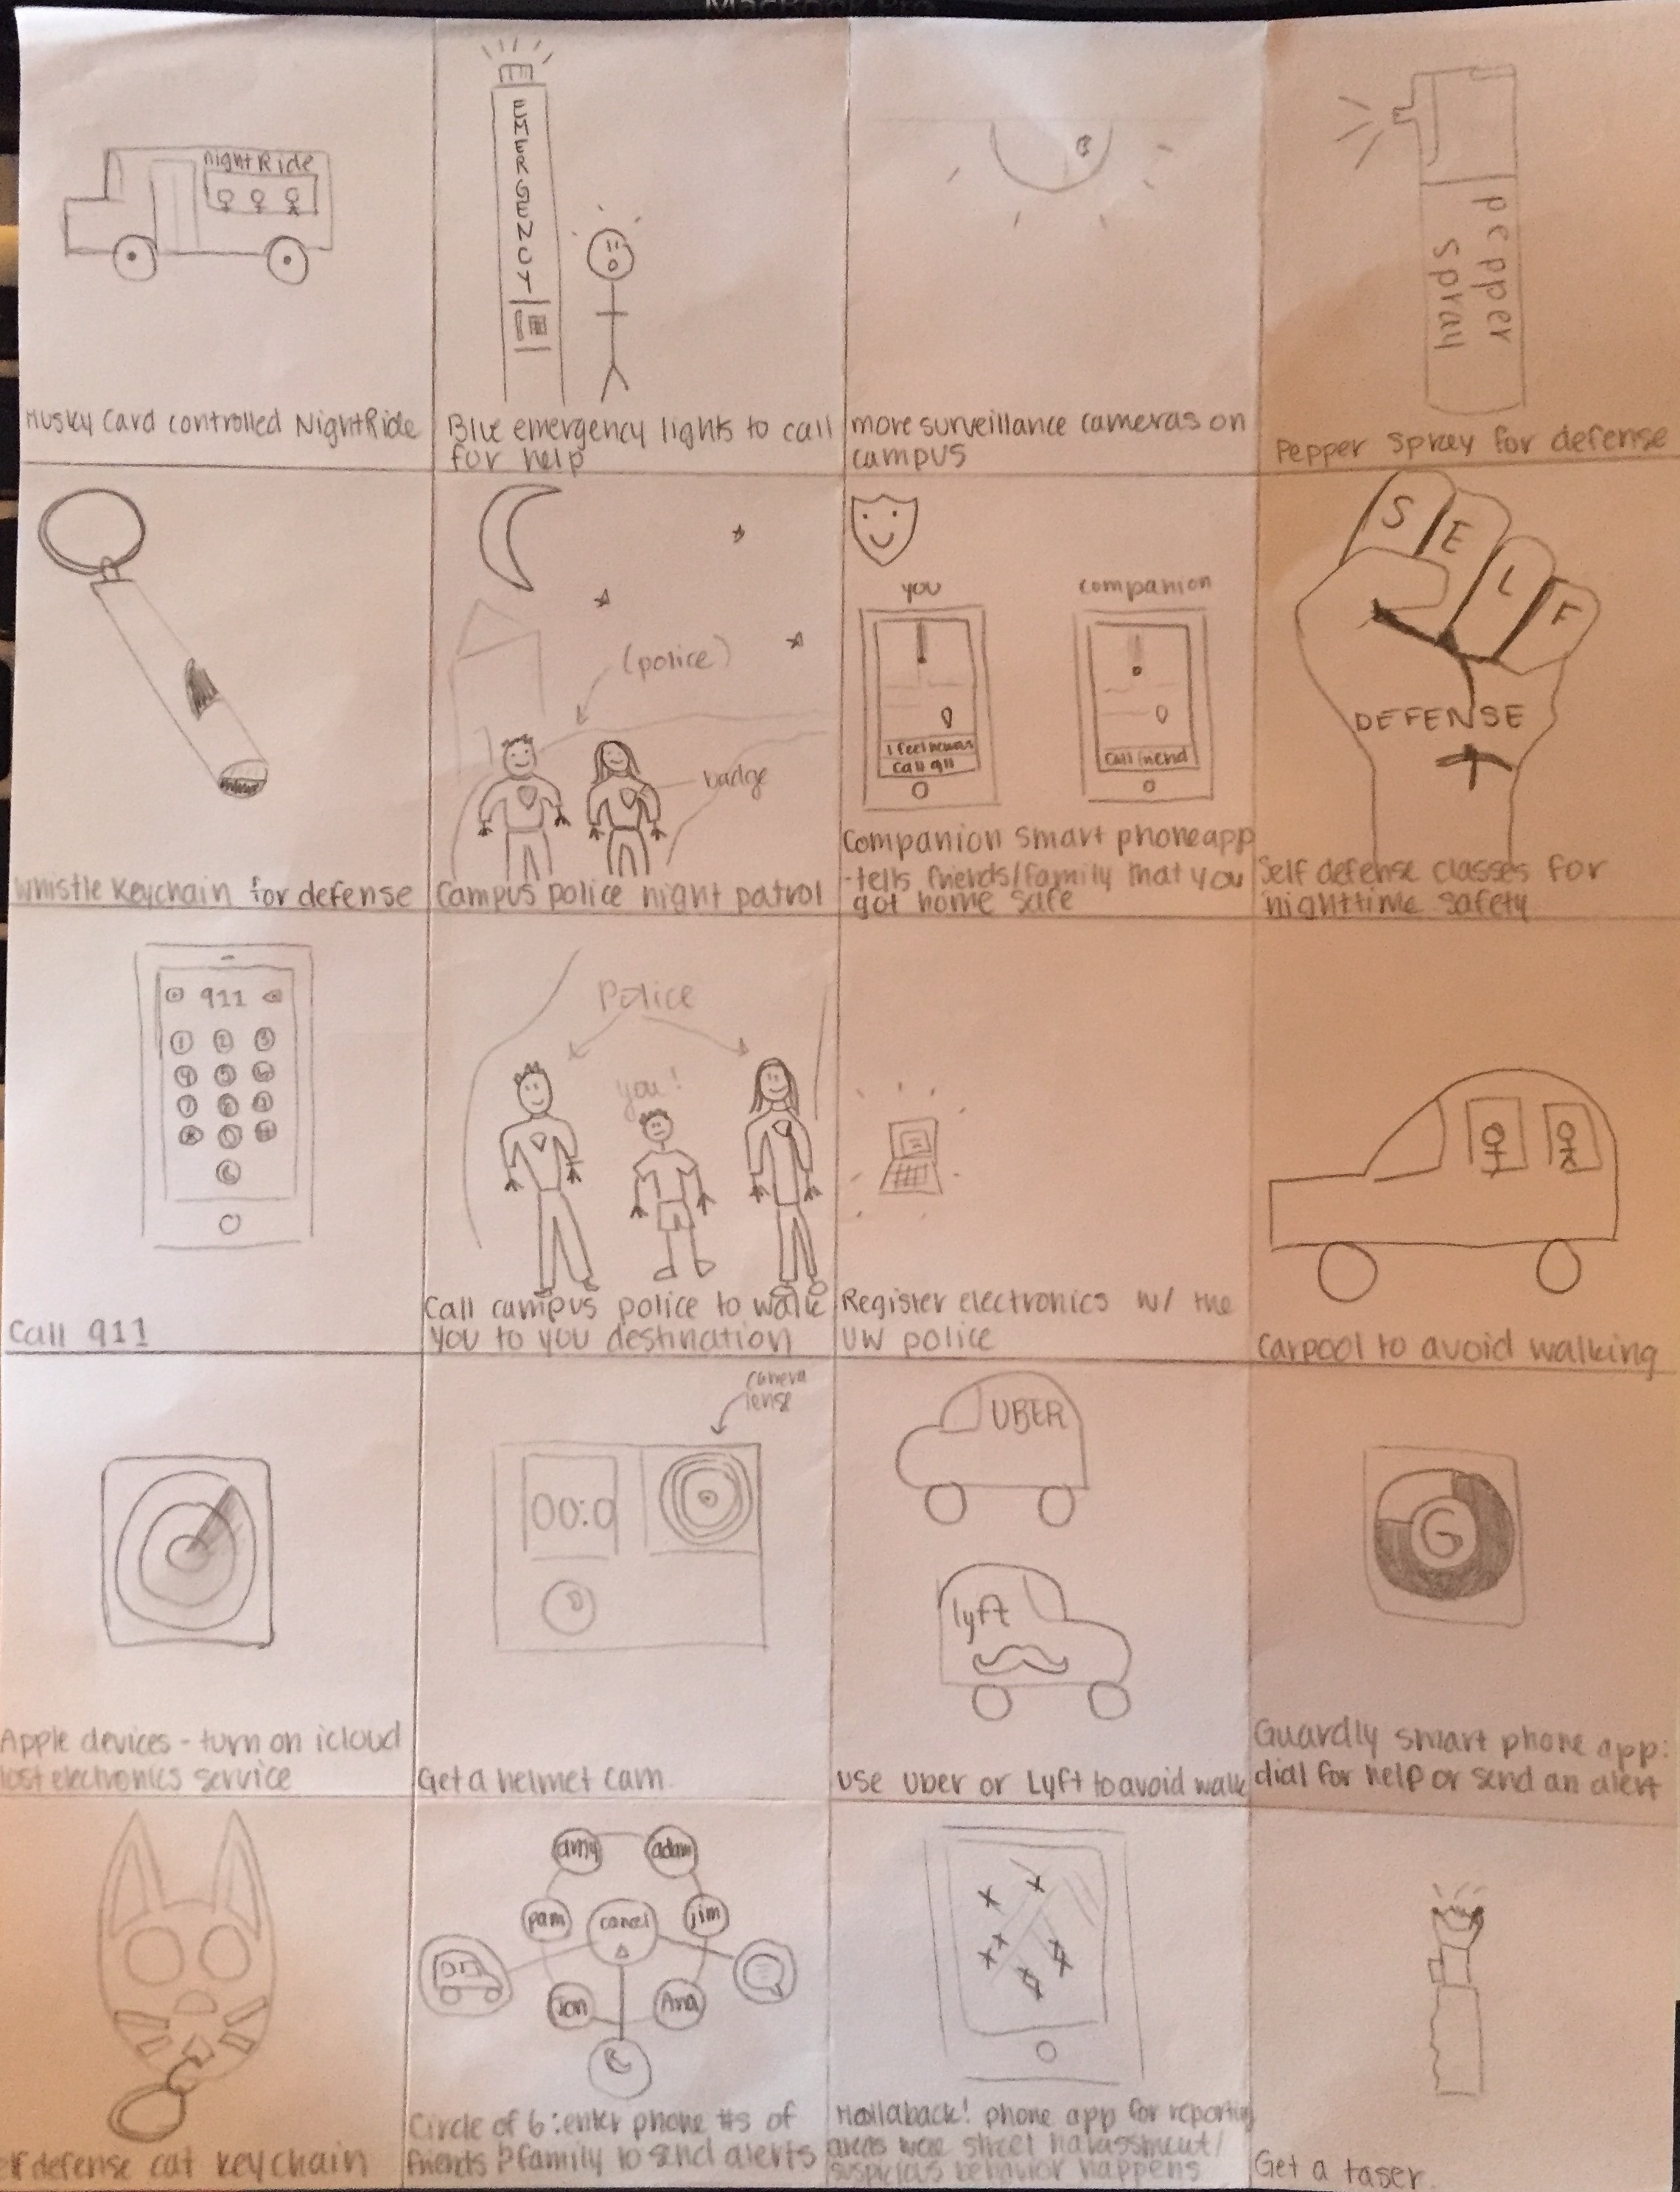 MacBook Pro
nightRide
Husky Card controlled NightRide
EMERGENCY
Blue emergency lights to call
for help
more surveillance cameras on
campus
pepper
spray
Pepper spray for defense
Whistle Keychain for defense
(police)
badge
Campus police night patrol
you
companion
call 911
Call friend
Companion smart phone app
-tells friends/family that you
got home safe
SELF
DEFENSE
Self defense classes for
nighttime safety
911
1 2 3
4 5 6
7 8 9
* 0 #
Call 911
Police
you!
Call campus police to walk
you to you destination
Register electronics w/ the
UW police
Carpool to avoid walking
Apple devices - turn on icloud
lost electronics service
camera
lense
00:0
Get a helmet cam.
UBER
lyft
use Uber or Lyft to avoid walk
G
Guardly smart phone app:
dial for help or send an alert
f defense cat keychain
amy
adam
pam
cancel
jim
Jon
Ana
Circle of 6: enter phone #s of
friends & family to send alerts
Hollaback! phone app for reporting
areas were street harassment/
suspicious behavior happens
Get a taser.